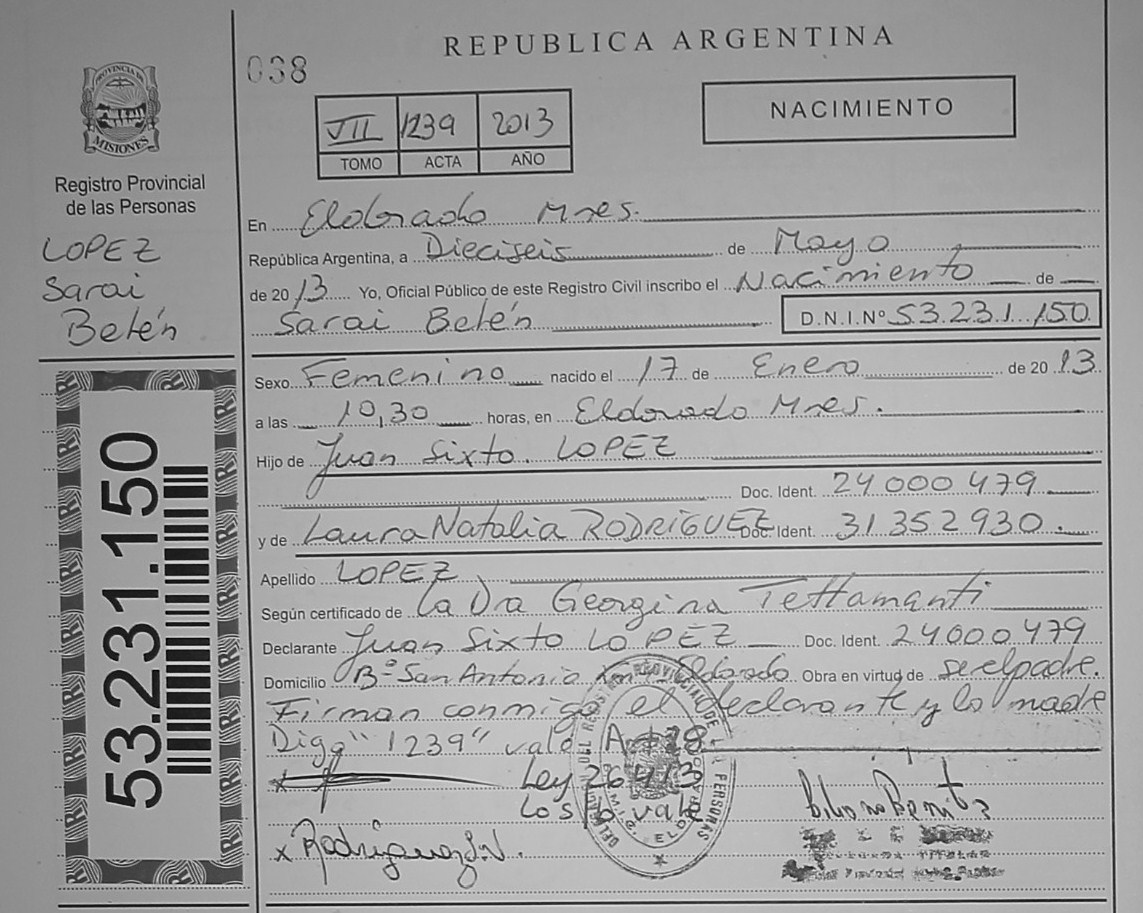 REPUBLICA ARGENTINA
038
PROVINCIA DE
MISIONES
Registro Provincial
de las Personas
LOPEZ
Sarai
Belén
53.231.150
VII 1239 2013
TOMO ACTA AÑO
NACIMIENTO
En Eldorado Mnes.
República Argentina, a Dieciseis de Mayo
de 2013 Yo, Oficial Público de este Registro Civil inscribo el Nacimiento de
Sarai Belén D.N.I.Nº 53.231.150
Sexo Femenino nacido el 17 de Enero de 2013
a las 10,30 horas, en Eldorado Mnes.
Hijo de Juan Sixto LOPEZ
Doc. Ident. 24000479
y de Laura Natalia RODRIGUEZ Doc. Ident. 31.352.930.
Apellido LOPEZ
Según certificado de la Dra Georgina Tettamanti
Declarante Juan Sixto LOPEZ Doc. Ident. 24000479
Domicilio Bº San Antonio Eldorado Obra en virtud de ser el padre.
Firman conmigo el declarante y la madre
Digo "1239" vale Art 28
Ley 26413
Los vale
x
x Rodriguez